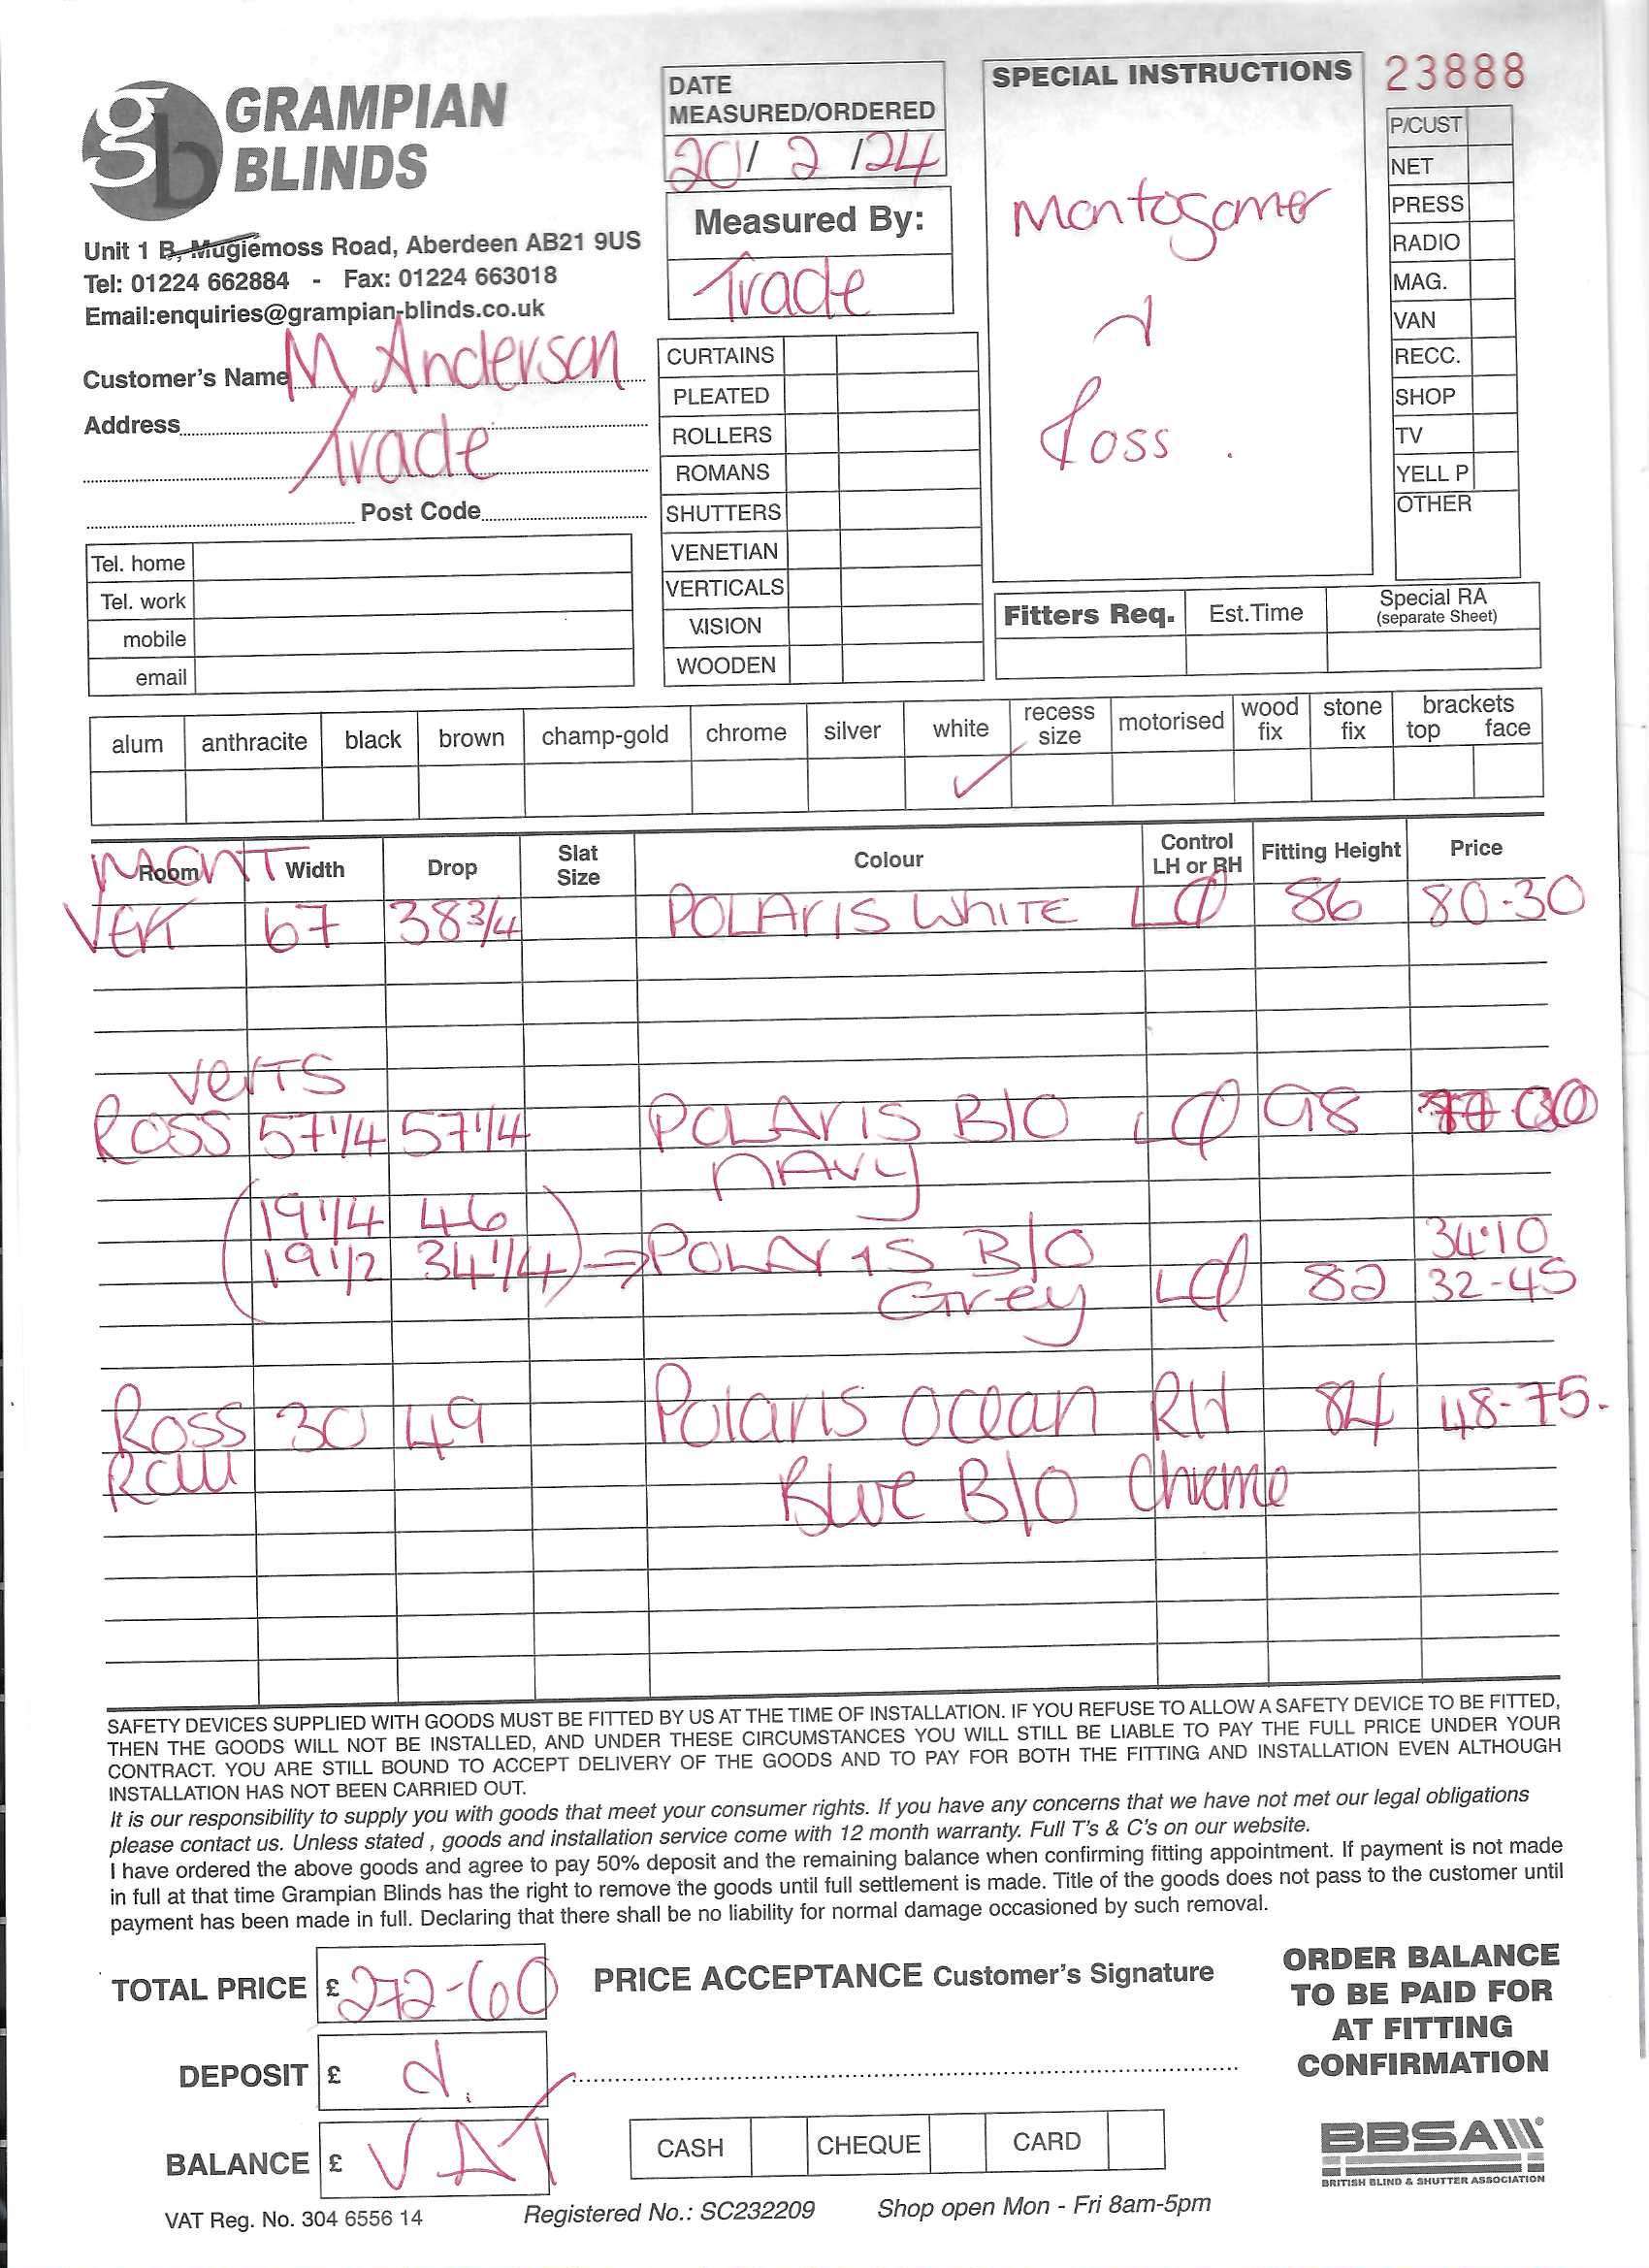 GRAMPIAN
BLINDS
Unit 1 B, Mugiemoss Road, Aberdeen AB21 9US
Tel: 01224 662884 - Fax: 01224 663018
Email:enquiries@grampian-blinds.co.uk
Customer's Name M Anderson
Address Trade
Post Code
Tel. home
Tel. work
mobile
email
DATE
MEASURED/ORDERED
20/ 2 /24
Measured By:
Trade
CURTAINS
PLEATED
ROLLERS
ROMANS
SHUTTERS
VENETIAN
VERTICALS
VISION
WOODEN
SPECIAL INSTRUCTIONS
Ross .
23888
P/CUST
NET
PRESS
RADIO
MAG.
VAN
RECC.
SHOP
TV
YELL P
OTHER
Fitters Req. Est.Time Special RA
(separate Sheet)
alum anthracite black brown champ-gold chrome silver white recess size motorised wood fix stone fix brackets top face
✓
MONT
Room Width Drop Slat Size Colour Control LH or RH Fitting Height Price
VERT 67 38 3/4 POLARIS WHITE 86 80-30
VERTS
ROSS 57 1/4 57 1/4 POLARIS B/O 98
NAVY
19 1/4 46
34.10
19 1/2 34 1/4 ⇒ POLARIS B/O
Grey 82 32-45
Ross 30 49 Polaris Ocean RH 84 48-75.
Roll Blue B/O Chrome
SAFETY DEVICES SUPPLIED WITH GOODS MUST BE FITTED BY US AT THE TIME OF INSTALLATION. IF YOU REFUSE TO ALLOW A SAFETY DEVICE TO BE FITTED,
THEN THE GOODS WILL NOT BE INSTALLED, AND UNDER THESE CIRCUMSTANCES YOU WILL STILL BE LIABLE TO PAY THE FULL PRICE UNDER YOUR
CONTRACT. YOU ARE STILL BOUND TO ACCEPT DELIVERY OF THE GOODS AND TO PAY FOR BOTH THE FITTING AND INSTALLATION EVEN ALTHOUGH
INSTALLATION HAS NOT BEEN CARRIED OUT.
It is our responsibility to supply you with goods that meet your consumer rights. If you have any concerns that we have not met our legal obligations
please contact us. Unless stated , goods and installation service come with 12 month warranty. Full T's & C's on our website.
I have ordered the above goods and agree to pay 50% deposit and the remaining balance when confirming fitting appointment. If payment is not made
in full at that time Grampian Blinds has the right to remove the goods until full settlement is made. Title of the goods does not pass to the customer until
payment has been made in full. Declaring that there shall be no liability for normal damage occasioned by such removal.
TOTAL PRICE £ 272-60
DEPOSIT £
BALANCE £ VAT
PRICE ACCEPTANCE Customer's Signature
CASH CHEQUE CARD
ORDER BALANCE
TO BE PAID FOR
AT FITTING
CONFIRMATION
BBSA
BRITISH BLIND & SHUTTER ASSOCIATION
VAT Reg. No. 304 6556 14 Registered No.: SC232209 Shop open Mon - Fri 8am-5pm